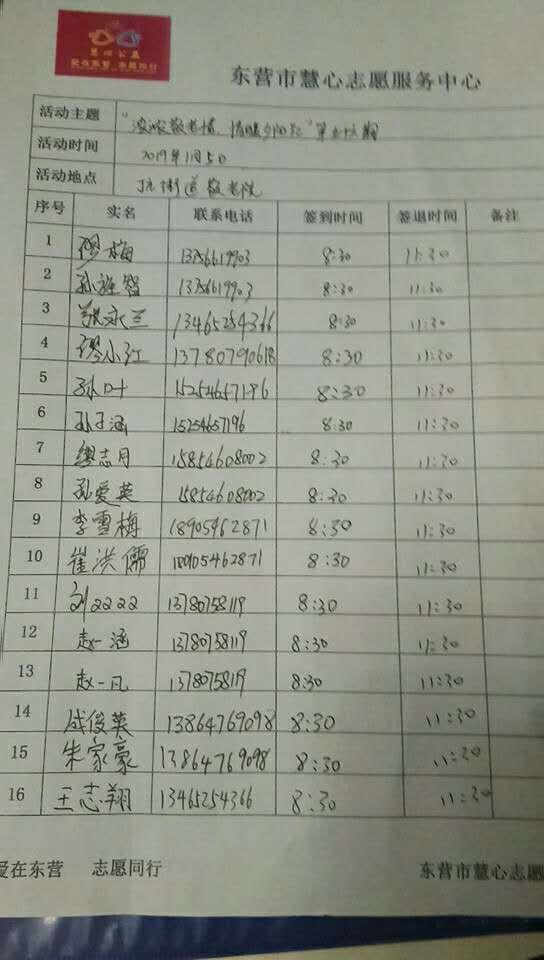 慧心公益
爱在东营 志愿同行
东营市慧心志愿服务中心
活动主题 "浓浓敬老情,情暖夕阳红"
活动时间 2019年1月5日
活动地点 街道敬老院
序号 实名 联系电话 签到时间 签退时间 备注
1 缪梅 13756619903 8:30 11:30
2 孙维智 13756619903 8:30 11:30
3 张永兰 13465254366 8:30 11:30
4 缪小红 13780790618 8:30 11:30
5 孙叶 15254657196 8:30 11:30
6 孙子涵 15254657196 8:30 11:30
7 缪志月 15854608002 8:30 11:30
8 孙爱英 15854608002 8:30 11:30
9 李雪梅 18905462871 8:30 11:30
10 崔洪儒 18905462871 8:30 11:30
11 刘 13780758119 8:30 11:30
12 赵一涵 13780758119 8:30 11:30
13 赵一凡 13780758119 8:30 11:30
14 成俊英 13864769098 8:30 11:30
15 朱家豪 13864769098 8:30 11:30
16 王志翔 13465254366 8:30 11:30
爱在东营 志愿同行 东营市慧心志愿